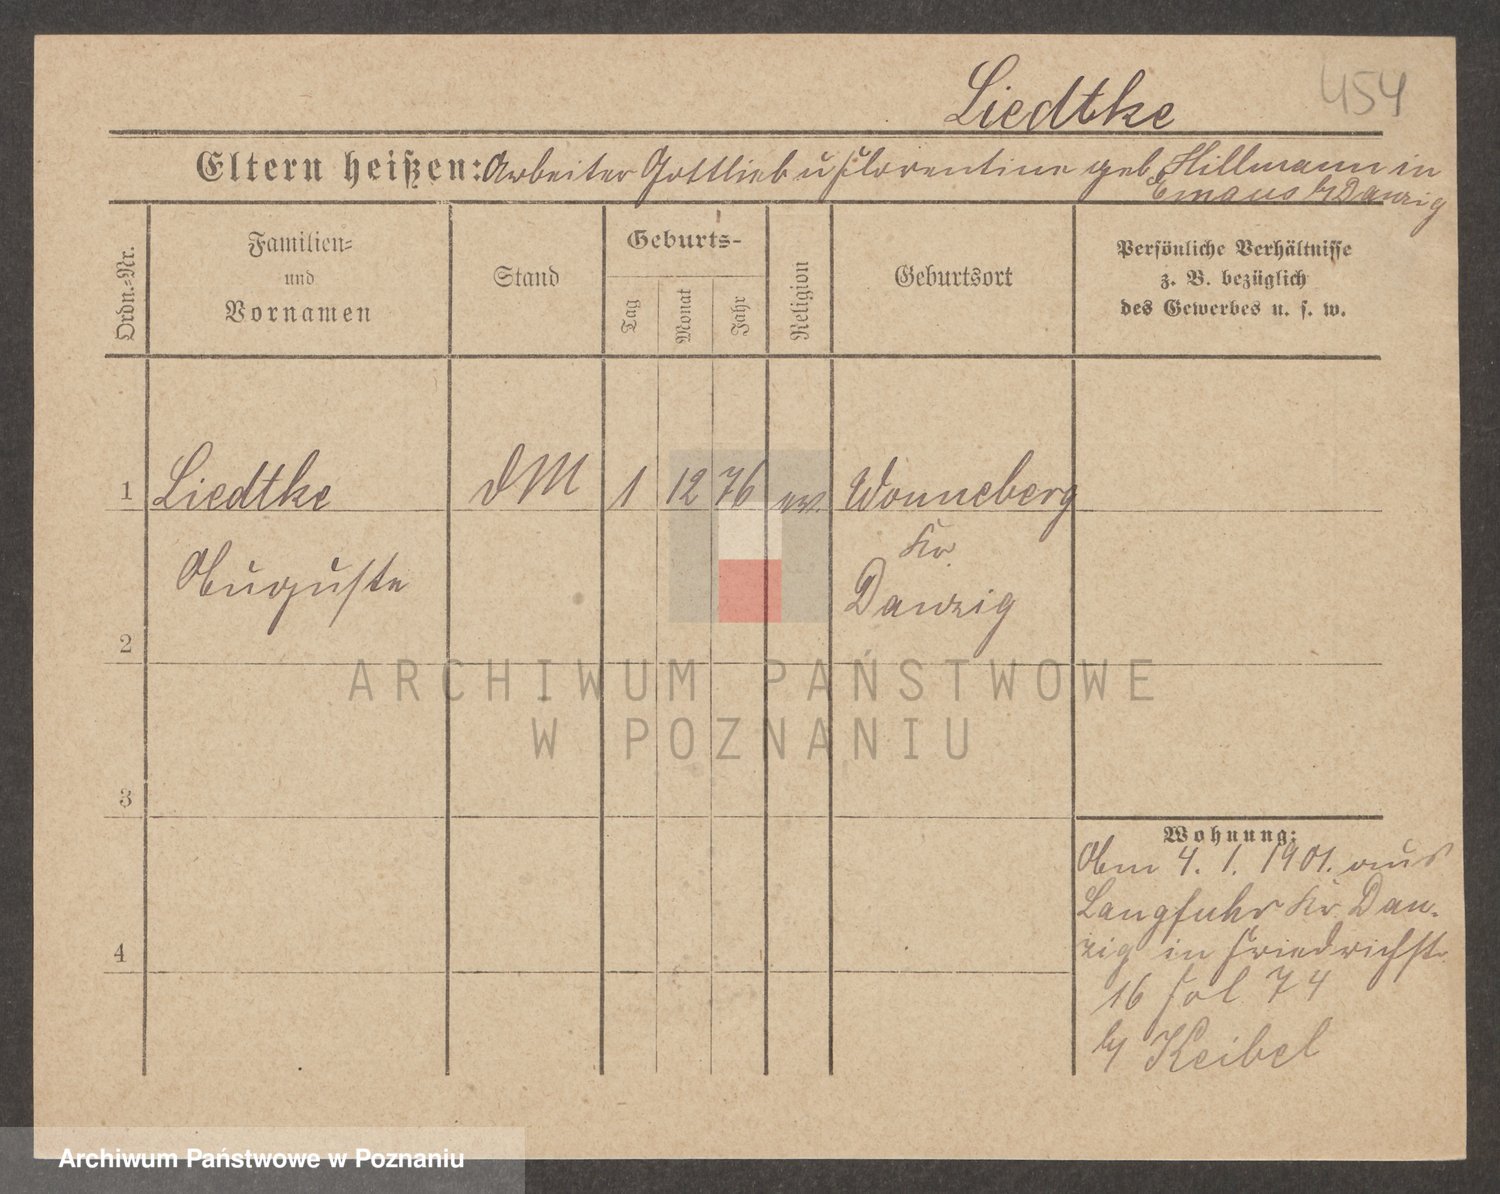 Liedtke
454
Eltern heißen: Arbeiter Gottlieb u Florentine geb. Hillmann in
Emaus b/ Danzig
Ordn.-Nr.
Familien-
und
Vornamen
Stand
Geburts-
Tag
Monat
Jahr
Religion
Geburtsort
Persönliche Verhältnisse
z. B. bezüglich
des Gewerbes u. s. w.
1 Liedtke DM 1 12 76 ev. Wonneberg
Kr.
Auguste Danzig
2
ARCHIWUM PAŃSTWOWE
W POZNANIU
3
Wohnung:
Am 4. 1. 1901. aus
Langfuhr Kr. Dan-
zig in Friedrichstr.
4
16 fol 74
b/ Keibel
Archiwum Państwowe w Poznaniu